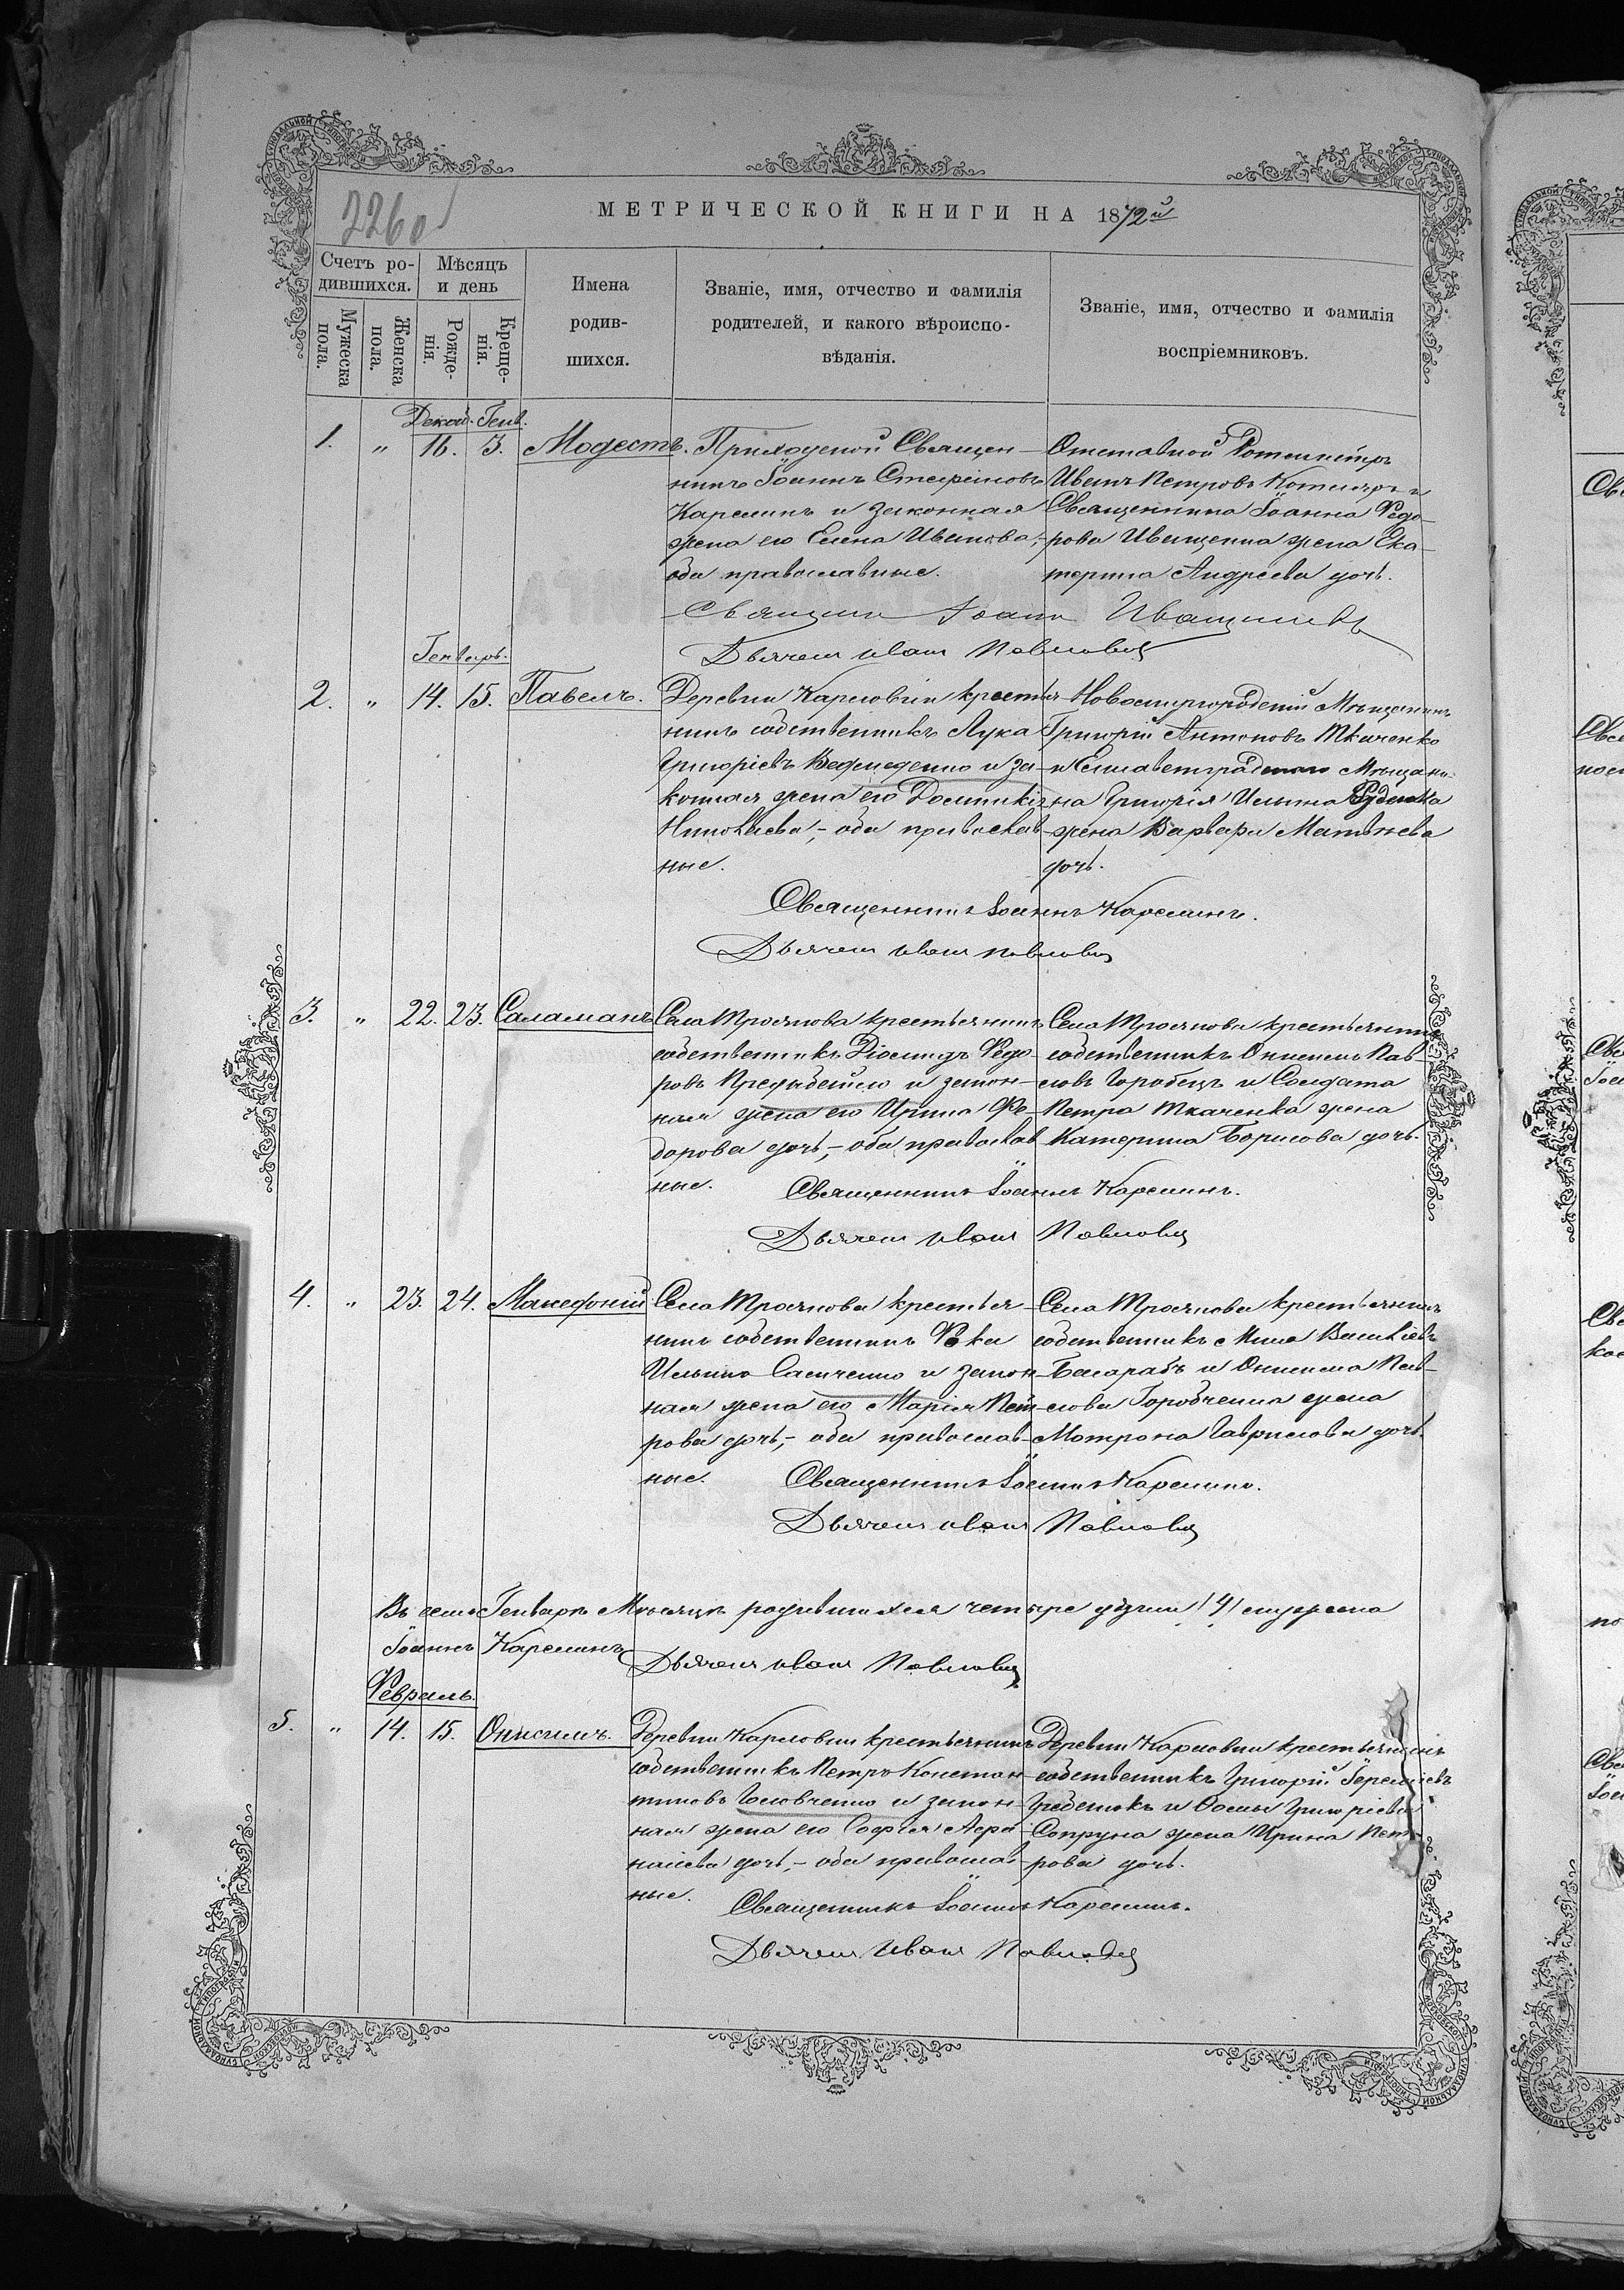 2260
МЕТРИЧЕСКОЙ КНИГИ НА 1872й
Счетъ ро-
дившихся.
Мужеска пола.
Женска пола.
Мѣсяцъ
и день
Рожде-
нія.
Креще-
нія.
Имена
родив-
шихся.
Званіе, имя, отчество и фамилія
родителей, и какого вѣроиспо-
вѣданія.
Званіе, имя, отчество и фамилія
воспріемниковъ.
Декаб. Генв.
1. " 16. 3. Модестъ.
Приходской Священ-
никъ Іоаннъ Стефановъ
Карелинъ и законная
жена его Елена Иванова,-
оба православные.
Отставной Ротмистръ
Иванъ Петровъ Котляръ и
Священника Іоанна Ѳедо-
рова Иващенка жена Ека-
терина Андреева дочь.
Священ Іоаннъ Иващенко
Дьячекъ Иванъ Павловъ
Генварь.
2. " 14. 15. Павелъ.
Деревни Карловки крестья-
нинъ собственникъ Лука
Григоріевъ Ведмеденко и за-
конная жена его Доминикія
Николаева,- оба православ-
ные.
Новомиргородскій Мѣщанинъ
Григорій Антоновъ Ткаченко
и Елисаветградскаго Мѣщани-
на Григорія Ильина
жена Варвара Матвѣева
дочь.
Священникъ Іоаннъ Карелинъ.
Дьячекъ Иванъ Павловъ
3. " 22. 23. Саламанъ
Села Троянова крестьянинъ
собственникъ Діомидъ Ѳедо-
ровъ и закон-
ная жена его Ирина Ѳе-
дорова дочь,- оба православ-
ные.
Села Троянова крестьянинъ
собственникъ Онисимъ Пав-
ловъ Горобецъ и Солдата
Петра Ткаченка жена
Катерина Борисова дочь.
Священникъ Іоаннъ Карелинъ.
Дьячекъ Иванъ Павловъ
4. " 23. 24. Македоній
Села Троянова крестья-
нинъ собственникъ Ѳока
Ильинъ и закон-
ная жена его Марія Пет-
рова дочь,- оба православ-
ные.
Села Троянова крестьянинъ
собственникъ Мина Василіевъ
Баларабъ и Онисима Пав-
лова Горобченка жена
Мотрона Гаврилова дочь.
Священникъ Іоаннъ Карелинъ.
Дьячекъ Иванъ Павловъ
Въ семъ Генварѣ Мѣсяцѣ родившихся четыре души /4/ мужеска
Іоаннъ Карелинъ
Дьячекъ Иванъ Павловъ
Февраль.
5. " 14. 15. Онисимъ.
Деревни Карловки крестьянинъ
собственникъ Петръ Констан-
тиновъ Головченко и закон-
ная жена его Софія Афа-
насіева дочь,- оба православ-
ные.
Деревни Карловки крестьянинъ
собственникъ Григорій Іереміевъ
Гребенюкъ и Ѳомы Григоріева
Сопруна жена Ирина Пет-
рова дочь.
Священникъ Іоаннъ Карелинъ.
Дьячекъ Иванъ Павловъ